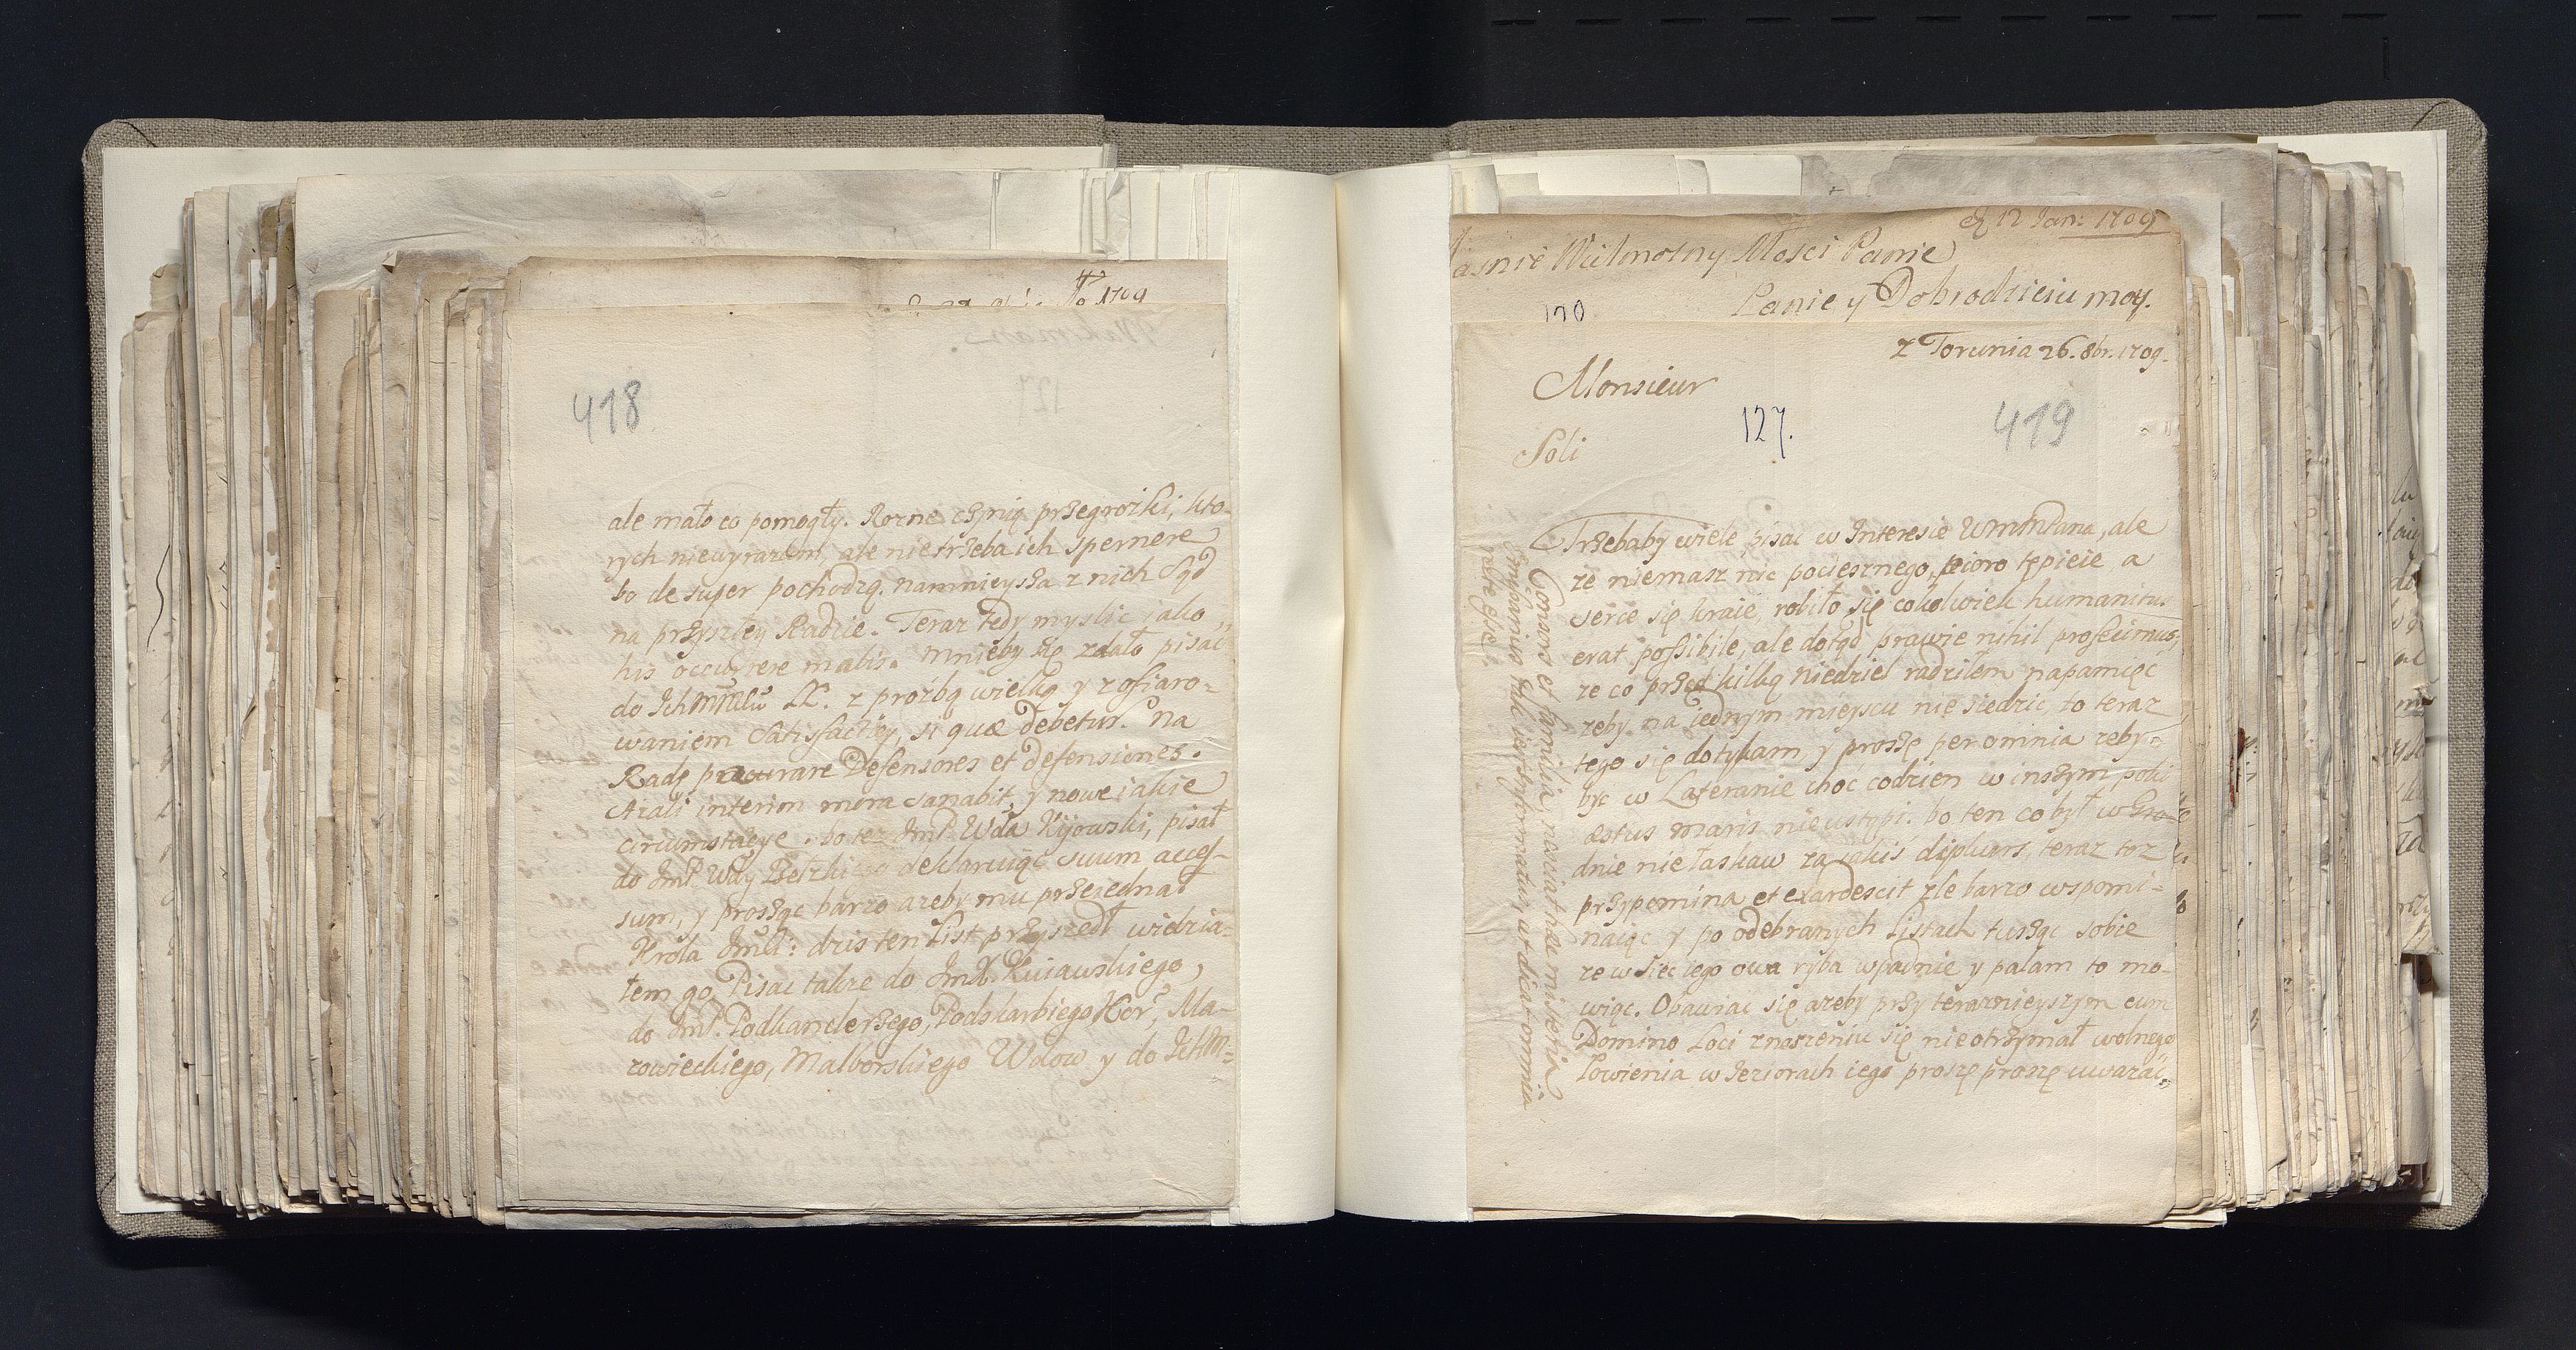 1709
418
ale mało co pomogły. Rozne czynią przegrożki, kto-
rych niewyrazam, ale nietrzeba ich spernere
bo de super pochodzą. namnieysza z nich Sąd
na przyszłey Radzie. Teraz tedy myslic iako
his occurrere malis. Mnieby się zdało pisać
do Ichmm LL. z proźbą wielką y z ofiaro-
waniem Satisfactiey, si quæ debetur. Na
Radę procurare Defensores et defensiones.
Azali interim mora sanabit, y nowe iakie
circumstącye. bo tez Jmł. Wda Kijowski, pisał
do Jmł. Wdy Bełzkiego deklaruiąc suum acces-
sum, y prosząc barzo azeby mu przeiednał
Krola Jmł: dzis ten List przyszedł widzia-
łem go, Pisac także do Jmł. Kuiawskiego,
do Jmł. Podkanclerzego, Podskarbiego Kor, Ma-
zowieckiego, Malborskiego Wdow y do Ichm-
12 Jan: 1709
Wielmozny Mosci Panie
Panie y Dobrodzieiu moy.
170
z Torunia 26. 8br. 1709.
Monsieur
127.
419
Soli
Trzebaby wiele pisac w Interesie Wmmpana, ale
ze niemasz nic pociesznego, pioro tępieie a
serce się kraie, robiło się cokolwiek humanitus
erat possibile, ale dotąd prawie nihil profecimus,
ze co przed kilką niedziel radziłem napamięć
zeby na iednym mieyscu nie siedzic, to teraz
tego się dotykam y proszę per omnia zeby
byc w Lateranie choć codzien w inszym, poki
æstus maris nieustąpi. bo ten co był w Gro-
dnie nie łaskaw za iakis displicens, teraz toz
przypomina et exardescit zle barzo wspomi-
naiąc y po odebranych Listach tusząc sobie
ze w siec iego owa ryba wpadnie y palam to mo-
wiąc. Obawiac się azeby przy teraznieyszym cum
Domino Loci znoszeniu się nieotrzymał wolnego
Łowienia w Jeziorach iego proszę proszę uwazać,
Consors et familia nesciat hæc misteria
Simpanius tuus informatus, at dicat omnia
rite esse.